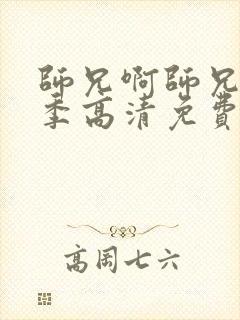 師兄啊師兄
季高清免費
高周七六